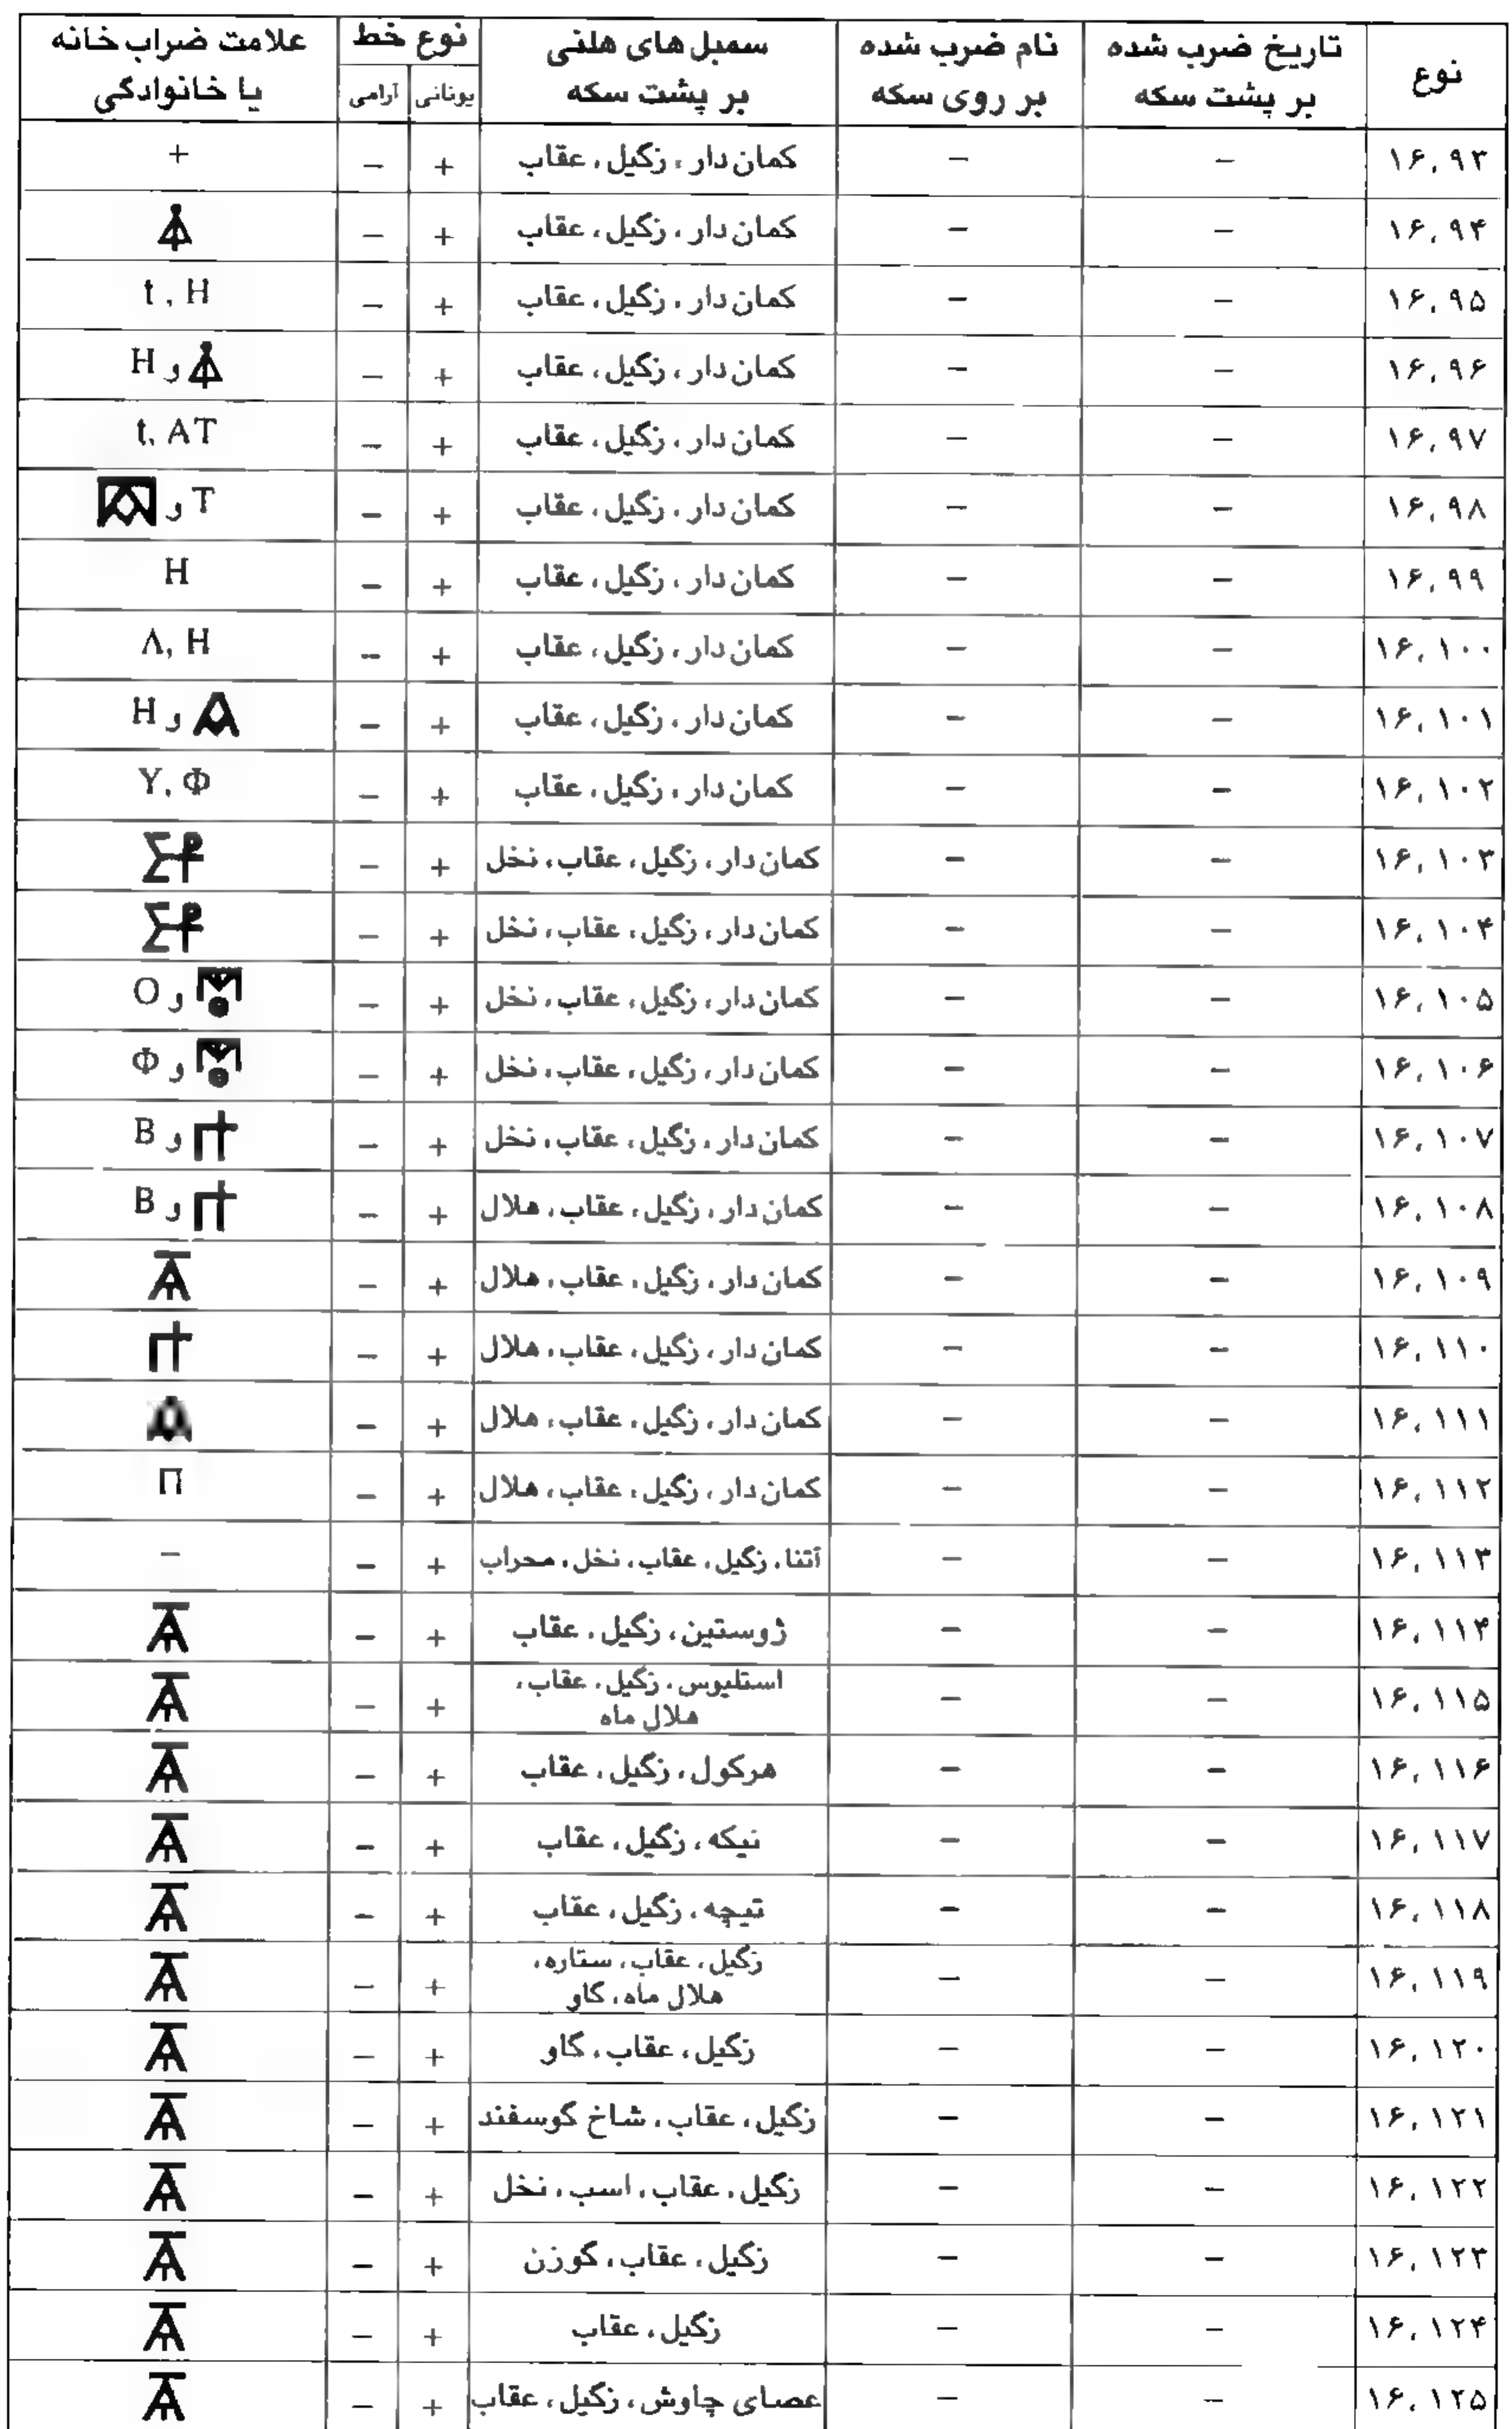 نوع | تاریخ ضرب شده بر پشت سکه | نام ضرب شده بر روی سکه | سمبل های هلنی بر پشت سکه | نوع خط: یونانی | آرامی | علامت ضراب خانه یا خانوادگی
۱۶,۹۳ | – | – | کمان دار، زگیل، عقاب | + | – | +
۱۶,۹۴ | – | – | کمان دار، زگیل، عقاب | + | – |
۱۶,۹۵ | – | – | کمان دار، زگیل، عقاب | + | – | t , H
۱۶,۹۶ | – | – | کمان دار، زگیل، عقاب | + | – | و H
۱۶,۹۷ | – | – | کمان دار، زگیل، عقاب | + | – | t, AT
۱۶,۹۸ | – | – | کمان دار، زگیل، عقاب | + | – | T و
۱۶,۹۹ | – | – | کمان دار، زگیل، عقاب | + | – | H
۱۶,۱۰۰ | – | – | کمان دار، زگیل، عقاب | + | – | Λ, H
۱۶,۱۰۱ | – | – | کمان دار، زگیل، عقاب | + | – | و H
۱۶,۱۰۲ | – | – | کمان دار، زگیل، عقاب | + | – | Y, Φ
۱۶,۱۰۳ | – | – | کمان دار، زگیل، عقاب، نخل | + | – |
۱۶,۱۰۴ | – | – | کمان دار، زگیل، عقاب، نخل | + | – |
۱۶,۱۰۵ | – | – | کمان دار، زگیل، عقاب، نخل | + | – | و O
۱۶,۱۰۶ | – | – | کمان دار، زگیل، عقاب، نخل | + | – | و Φ
۱۶,۱۰۷ | – | – | کمان دار، زگیل، عقاب، نخل | + | – | و B
۱۶,۱۰۸ | – | – | کمان دار، زگیل، عقاب، هلال | + | – | و B
۱۶,۱۰۹ | – | – | کمان دار، زگیل، عقاب، هلال | + | – |
۱۶,۱۱۰ | – | – | کمان دار، زگیل، عقاب، هلال | + | – |
۱۶,۱۱۱ | – | – | کمان دار، زگیل، عقاب، هلال | + | – |
۱۶,۱۱۲ | – | – | کمان دار، زگیل، عقاب، هلال | + | – | Π
۱۶,۱۱۳ | – | – | آتنا، زگیل، عقاب، نخل، محراب | + | – | –
۱۶,۱۱۴ | – | – | ژوستین، زگیل، عقاب | + | – |
۱۶,۱۱۵ | – | – | استلیوس، زگیل، عقاب، هلال ماه | + | – |
۱۶,۱۱۶ | – | – | هرکول، زگیل، عقاب | + | – |
۱۶,۱۱۷ | – | – | نیکه، زگیل، عقاب | + | – |
۱۶,۱۱۸ | – | – | تیچه، زگیل، عقاب | + | – |
۱۶,۱۱۹ | – | – | زگیل، عقاب، ستاره، هلال ماه، گاو | + | – |
۱۶,۱۲۰ | – | – | زگیل، عقاب، گاو | + | – |
۱۶,۱۲۱ | – | – | زگیل، عقاب، شاخ گوسفند | + | – |
۱۶,۱۲۲ | – | – | زگیل، عقاب، اسب، نخل | + | – |
۱۶,۱۲۳ | – | – | زگیل، عقاب، گوزن | + | – |
۱۶,۱۲۴ | – | – | زگیل، عقاب | + | – |
۱۶,۱۲۵ | – | – | عصای چاوش، زگیل، عقاب | + | – |